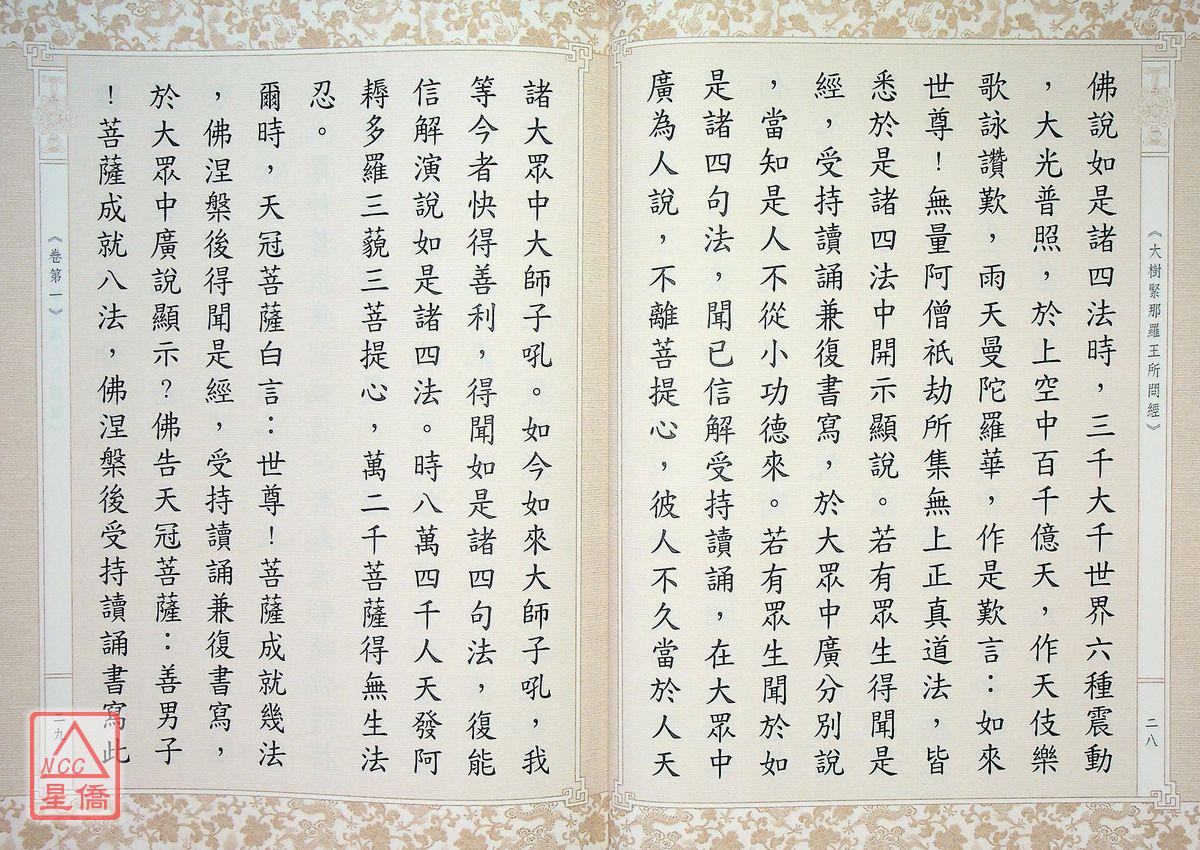 《大樹緊那羅王所問經》
二八
佛說如是諸四法時，三千大千世界六種震動
，大光普照，於上空中百千億天，作天伎樂
歌詠讚歎，雨天曼陀羅華，作是歎言：如來
世尊！無量阿僧祇劫所集無上正真道法，皆
悉於是諸四法中開示顯說。若有眾生得聞是
經，受持讀誦兼復書寫，於大眾中廣分別說
，當知是人不從小功德來。若有眾生聞於如
是諸四句法，聞已信解受持讀誦，在大眾中
廣為人說，不離菩提心，彼人不久當於人天
諸大眾中大師子吼。如今如來大師子吼，我
等今者快得善利，得聞如是諸四句法，復能
信解演說如是諸四法。時八萬四千人天發阿
耨多羅三藐三菩提心，萬二千菩薩得無生法
忍。
爾時，天冠菩薩白言：世尊！菩薩成就幾法
，佛涅槃後得聞是經，受持讀誦兼復書寫，
於大眾中廣說顯示？佛告天冠菩薩：善男子
！菩薩成就八法，佛涅槃後受持讀誦書寫此
《卷第一》
二九
NCC
星僑